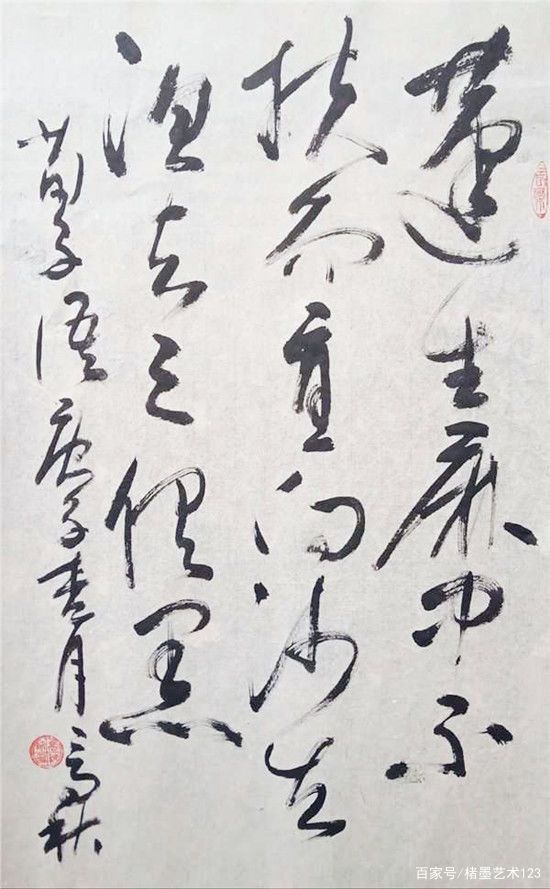 蓬生麻中不
扶而直白沙在
涅与之俱黑
荀子语庚子春月
百家号/楮墨艺术123